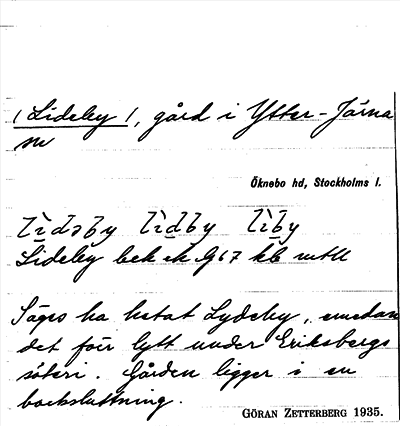 (Lideby), gård i Ytter-Järna
sn
Öknebo hd, Stockholms l.
lìdəby lìdby lìby
Lideby bek ek G67 kb mtll
Säges ha hetat Lydeby, emedan
det förr lytt under Eriksbergs
säteri. Gården ligger i en
backsluttning.
GÖRAN ZETTERBERG 1935.